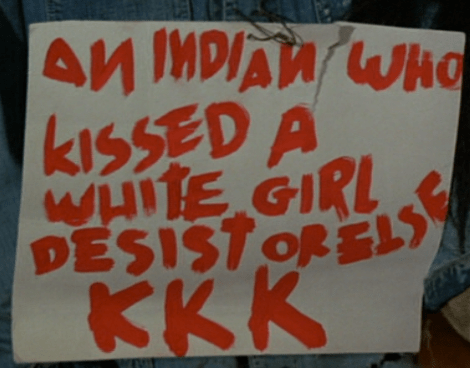 AN INDIAN WHO
KISSED A
WHITE GIRL
DESIST OR ELSE
KKK